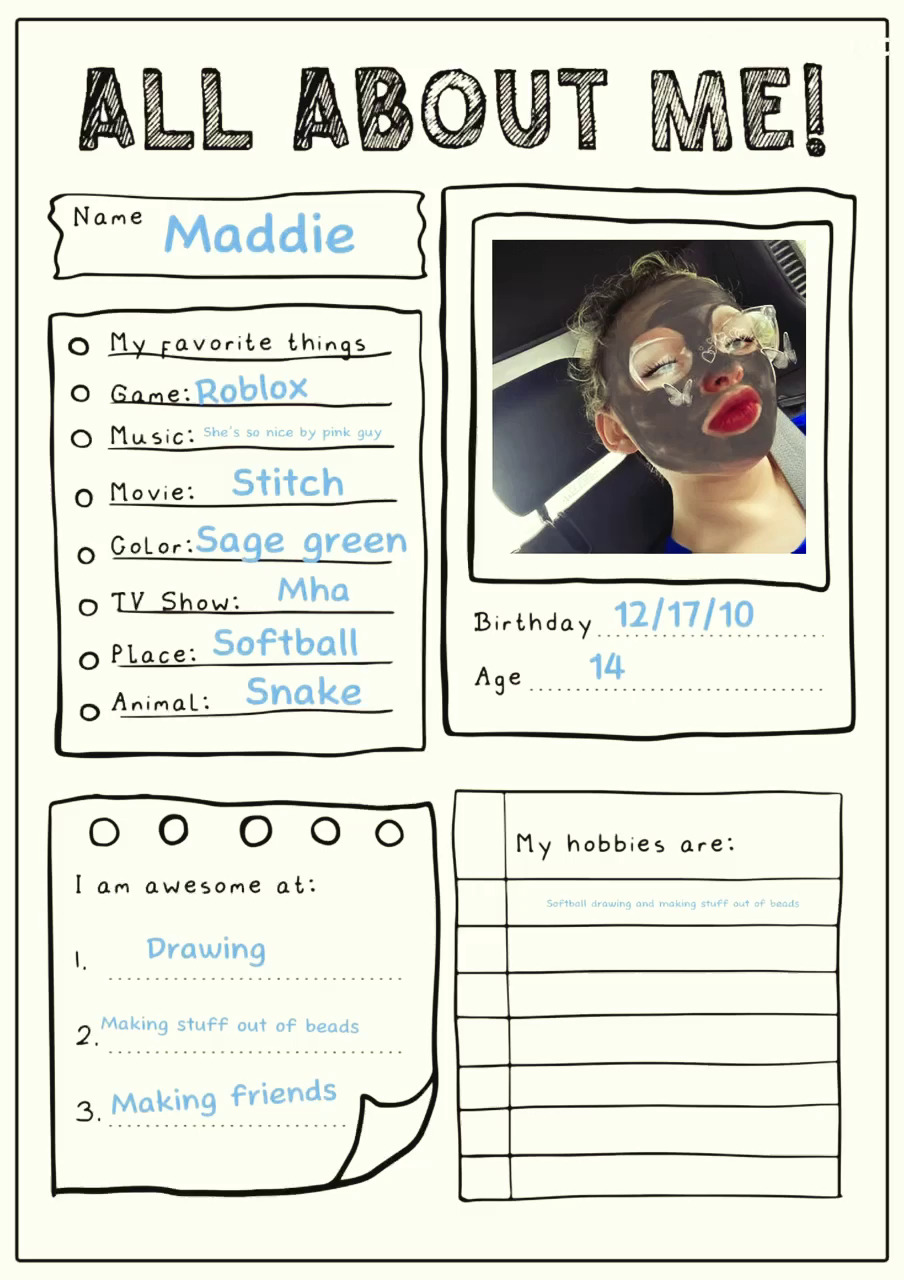 ALL ABOUT ME!
Name Maddie
My favorite things
Game: Roblox
Music: She's so nice by pink guy
Movie: Stitch
Color: Sage green
TV Show: Mha
Place: Softball
Animal: Snake
Birthday 12/17/10
Age 14
I am awesome at:
1. Drawing
2. Making stuff out of beads
3. Making friends
My hobbies are:
Softball drawing and making stuff out of beads